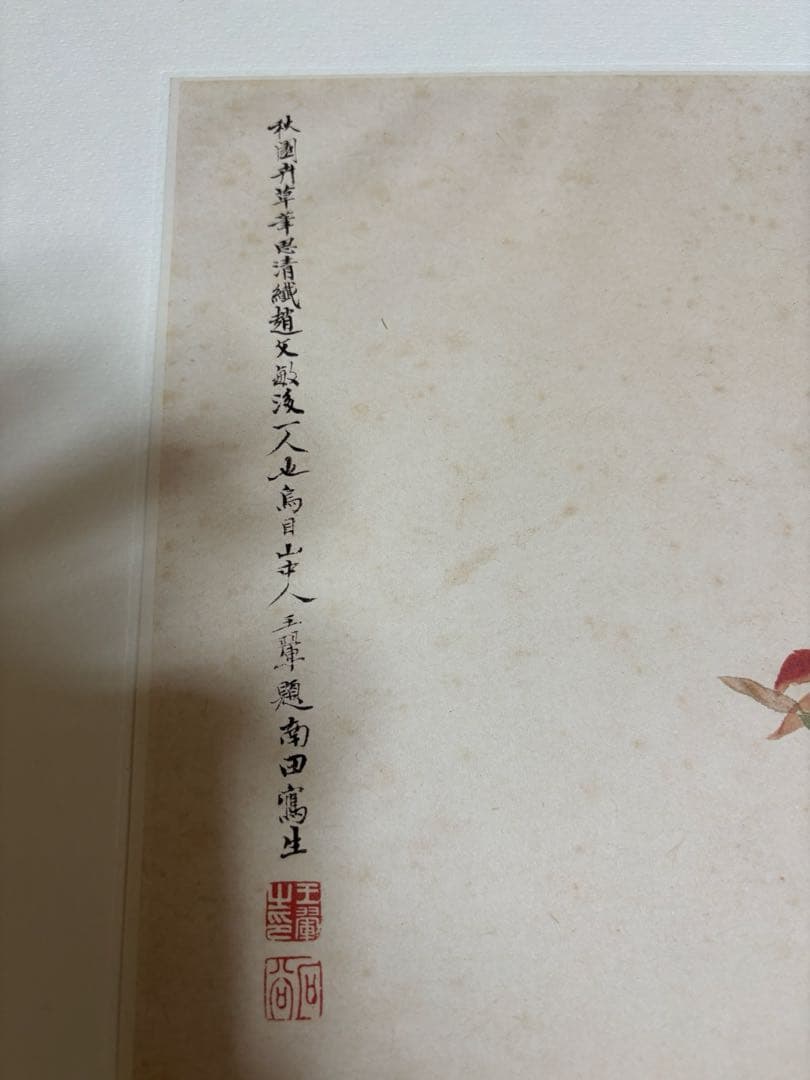 秋園卉草筆思清纖趙文敏後一人也烏目山中人王翬題南田寫生
王翬之印
石谷